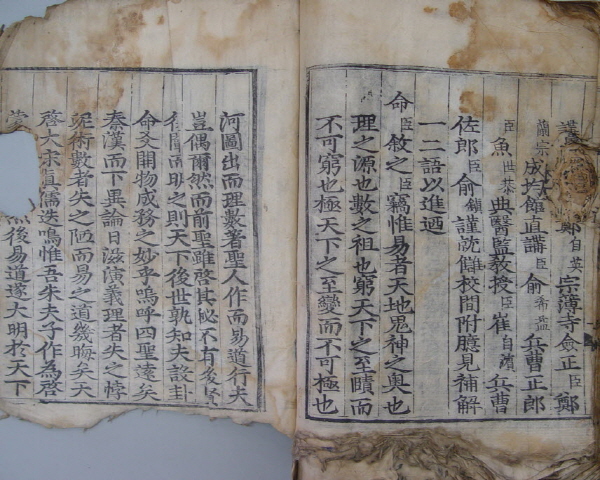 鄭自英宗簿寺僉正臣鄭
蘭宗成均館直講臣俞希益兵曹正郎
臣魚世恭典醫監教授臣崔自濱兵曹
佐郎臣俞鎮謹讎校間附臆見補解
一二語以進迺
命臣敘之臣竊惟易者天地鬼神之奧也
理之源也數之祖也窮天下之至賾而
不可窮也極天下之至變而不可極也
河圖出而理數著聖人作而易道行夫
豈偶爾然而前聖雖啓其秘不有後聖
明之則天下後世孰知夫設卦
命爻開物成務之妙乎嗚呼四聖遠矣
秦漢而下異論日滋演義理者失之悖
術數者失之陋而易之道幾晦矣天
啓大宋眞儒迭鳴惟吾朱夫子作為啓
然後易道遂大明於天下